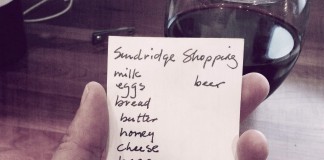 Sundridge Shopping
milk
eggs beer
bread
butter
honey
cheese